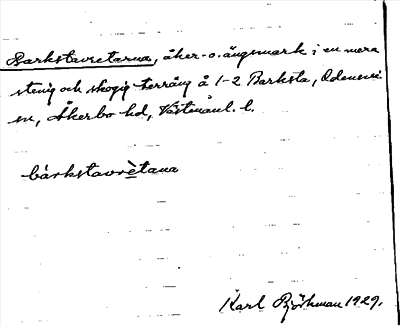 Barkstavretarna, åker- o. ängsmark i en mera
stenig och skogig terräng å 1-2 Barksta, Odensvi
sn, Åkerbo hd, Västmanl. l.
bàrkstavrètana
Karl Björkman 1929.